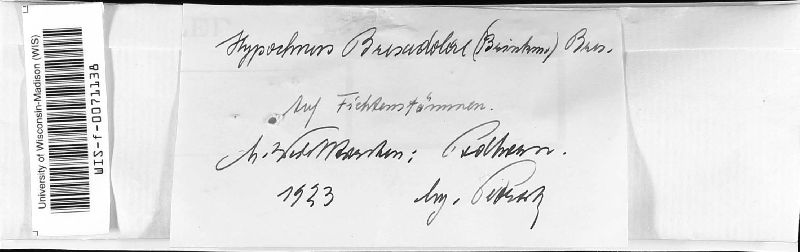 University of Wisconsin-Madison (WIS)
WIS-f-0071138
Hypochnus Bresadolae (Brinkm.) Bres.
Auf Fichtenstämmen.
Podhorn.
1923 leg. Petrak